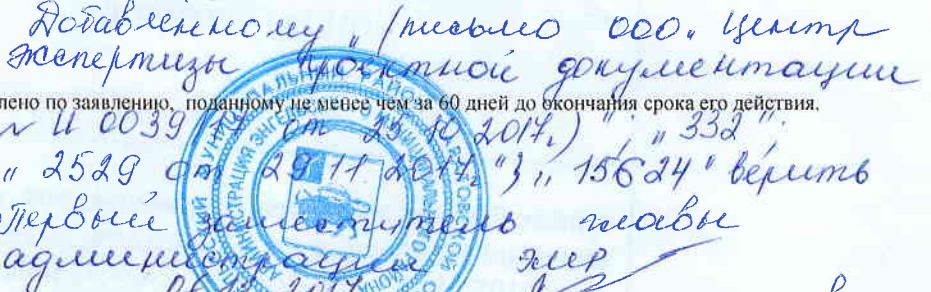 Добавленному „ (письмо ООО „ Центр
экспертизы проектной документации
лено по заявлению, поданному не менее чем за 60 дней до окончания срока его действия.
№ И 0039 17 от 25 10 2017г.) "; „ 332 ";
„ 2529 от 29 11 2017г."; „ 15624 " верить
Первый заместитель главы
администрации ЭМР
2017